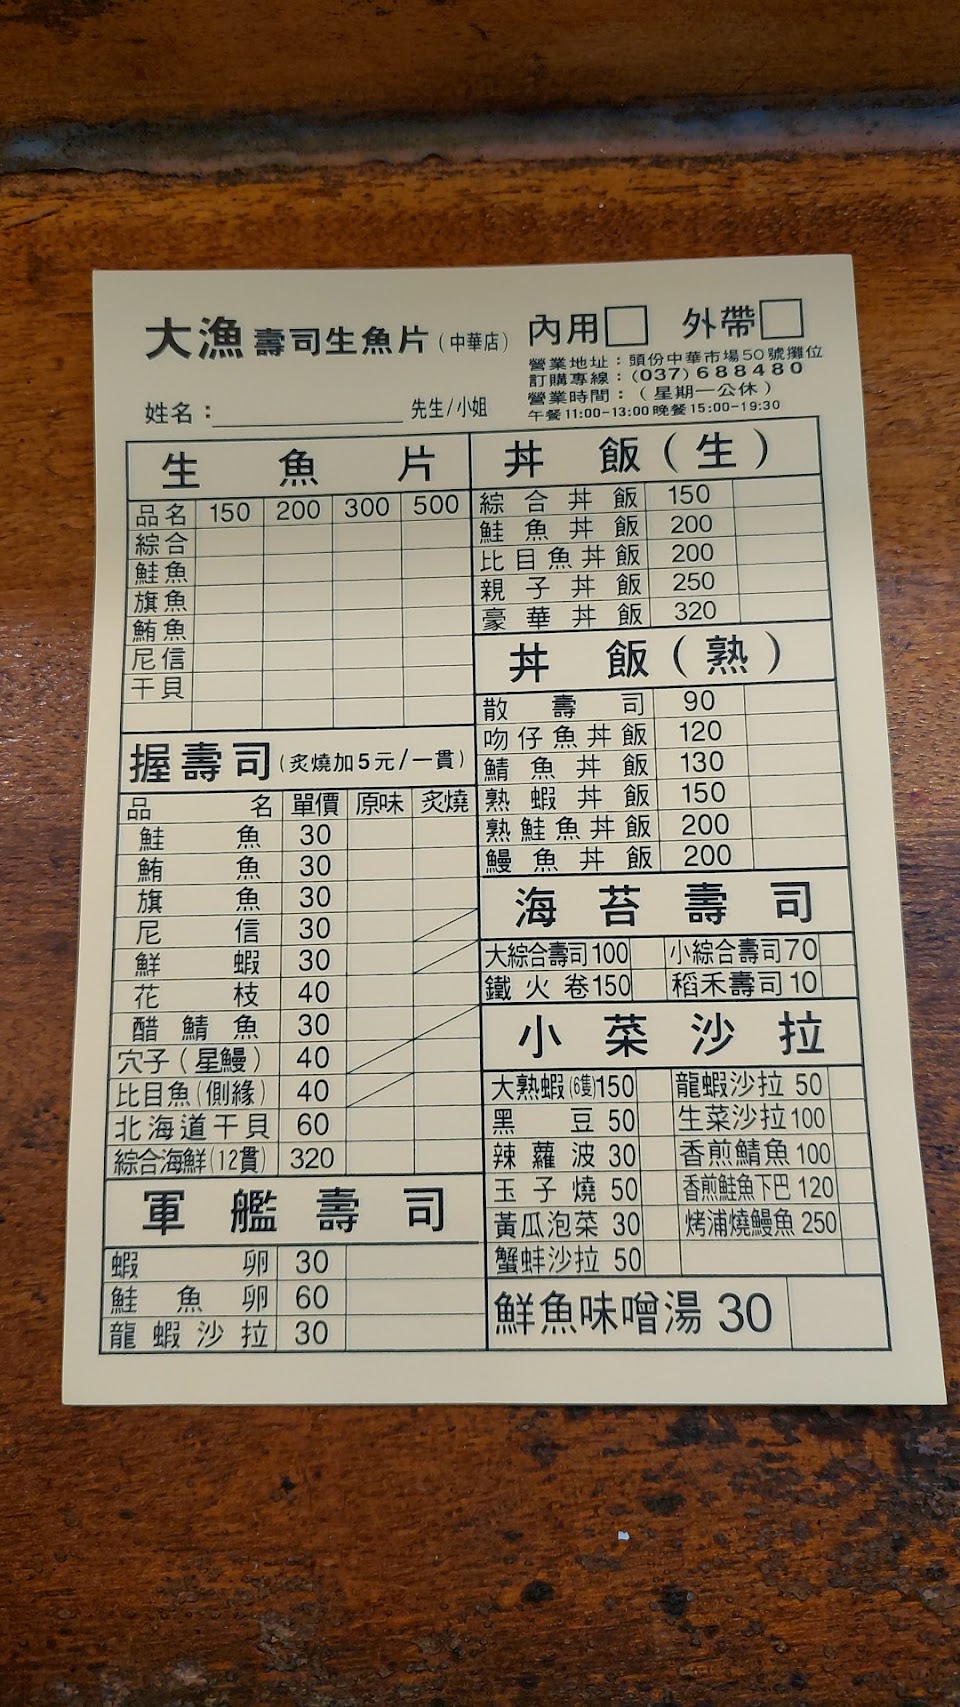 大漁壽司生魚片(中華店)
內用 外帶
營業地址：頭份中華市場50號攤位
訂購專線：(037)688480
營業時間：(星期一公休)
午餐11:00-13:00晚餐15:00-19:30
姓名：先生/小姐
生魚片
品名 150 200 300 500
綜合
鮭魚
旗魚
鮪魚
尼信
干貝
握壽司(炙燒加5元/一貫)
品名 單價 原味 炙燒
鮭魚 30
鮪魚 30
旗魚 30
尼信 30
鮮蝦 30
花枝 40
醋鯖魚 30
穴子(星鰻) 40
比目魚(側緣) 40
北海道干貝 60
綜合海鮮(12貫) 320
軍艦壽司
蝦卵 30
鮭魚卵 60
龍蝦沙拉 30
丼飯(生)
綜合丼飯 150
鮭魚丼飯 200
比目魚丼飯 200
親子丼飯 250
豪華丼飯 320
丼飯(熟)
散壽司 90
吻仔魚丼飯 120
鯖魚丼飯 130
熟蝦丼飯 150
熟鮭魚丼飯 200
鰻魚丼飯 200
海苔壽司
大綜合壽司100 小綜合壽司70
鐵火卷150 稻禾壽司10
小菜沙拉
大熟蝦(6隻)150 龍蝦沙拉 50
黑豆 50 生菜沙拉100
辣蘿波 30 香煎鯖魚 100
玉子燒 50 香煎鮭魚下巴 120
黃瓜泡菜 30 烤浦燒鰻魚 250
蟹蚌沙拉 50
鮮魚味噌湯 30